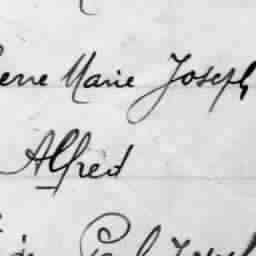 erre Marie Joseph
Alfred
Paul Joseph